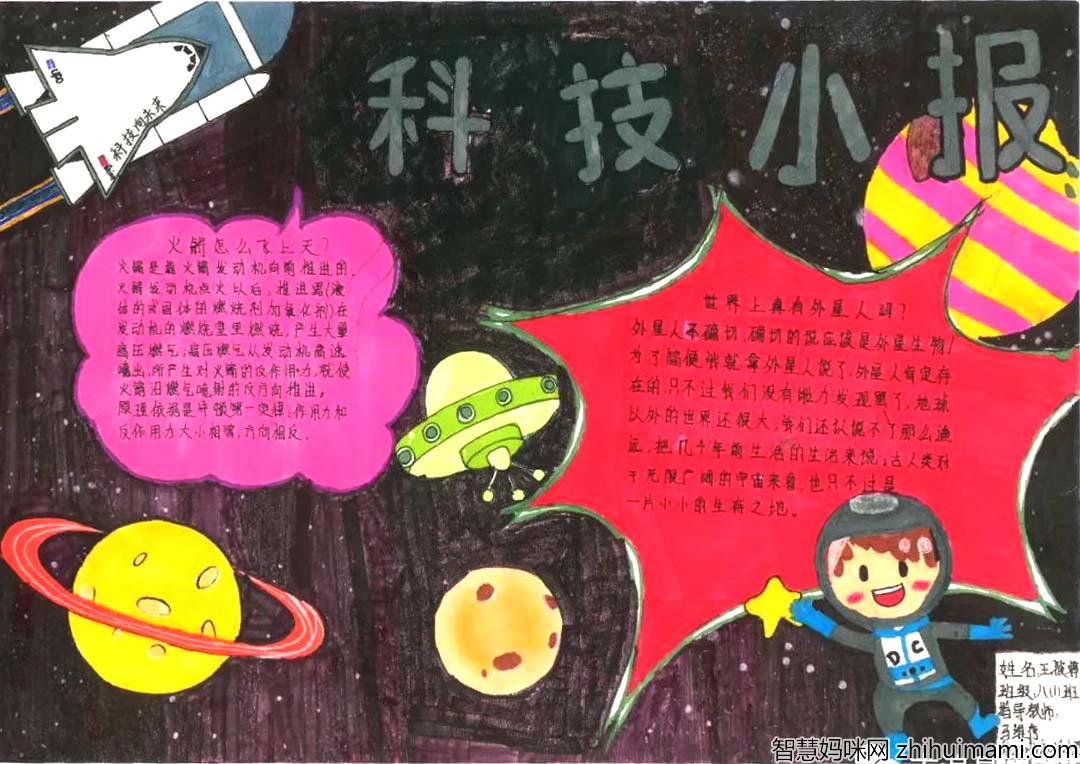 科技小报
科技向未来
火箭怎么飞上天?
火箭是靠火箭发动机向前推进的。
火箭发动机点火以后,推进器(液
体的或固体的燃烧剂加氧化剂)在
发动机的燃烧室里燃烧,产生大量
高压燃气;高压燃气从发动机高速
喷出,所产生对火箭的反作用力,就使
火箭沿燃气喷射的反方向推进。
原理依据是牛顿第一定律,作用力和
反作用力大小相等,方向相反。
世界上真有外星人吗?
外星人不确切,确切的说应该是外星生物!
为了简便俄就拿外星人说了,外星人肯定存
在的,只不过我们没有能力发现罢了,地球
以外的世界还很大,我们还认识不了那么遥
远,把几千年前生活的生活来说;古人类对
于无限广阔的宇宙来看,也只不过是
一片小小的生存之地。
DC
姓名:王
班级:八(1)班
指导教师:
智慧妈咪网 zhihuimami.com